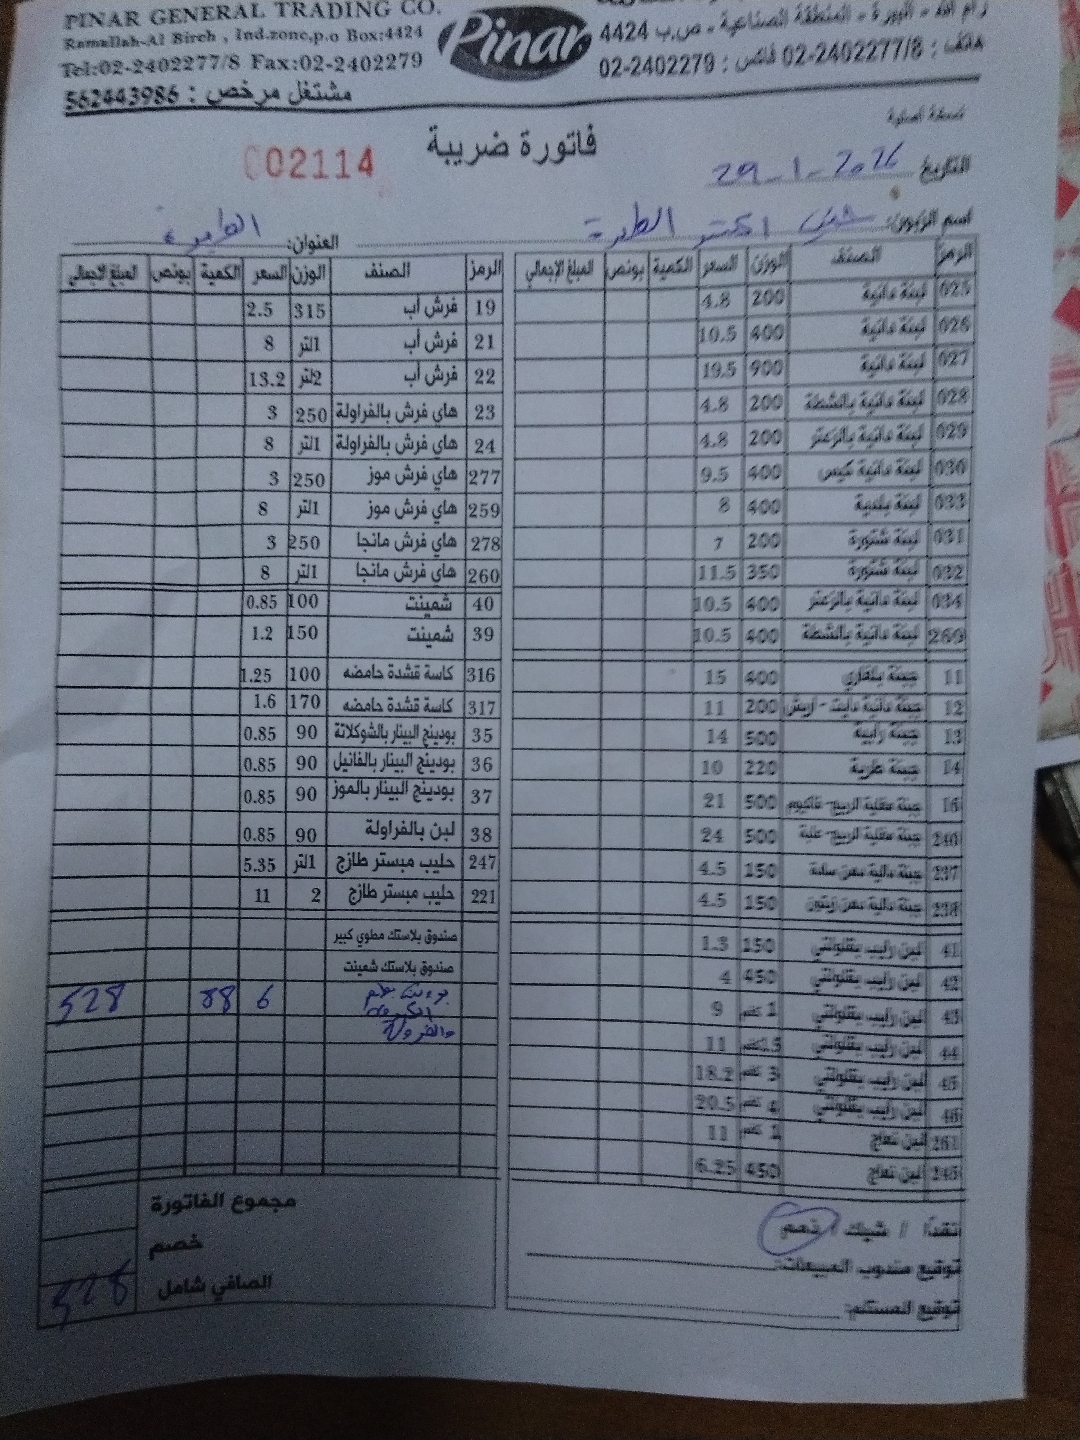 PINAR GENERAL TRADING CO.
Ramallah-Al Bireh , Ind.zone,p.o Box:4424
Tel:02-2402277/8 Fax:02-2402279
مشتغل مرخص : 562443986
Pinar
رام الله - البيرة - المنطقة الصناعية - ص.ب 4424
هاتف : 02-2402277/8 فاكس : 02-2402279
نسخة أصلية
فاتورة ضريبة
002114
التاريخ 29-1-2026
اسم الزبون:
العنوان:
الرمز الصنف الوزن السعر الكمية بونص المبلغ الإجمالي
025 لبنة دانية 200 4.8
026 لبنة دانية 400 10.5
027 لبنة دانية 900 19.5
028 لبنة دانية بالشطة 200 4.8
029 لبنة دانية بالزعتر 200 4.8
030 لبنة دانية كيس 400 9.5
033 لبنة بلدية 400 8
031 لبنة شتورة 200 7
032 لبنة شتورة 350 11.5
034 لبنة دانية بالزعتر 400 10.5
269 لبنة دانية بالشطة 400 10.5
11 جبنة بلغاري 400 15
12 جبنة دانية دايت - اريش 200 11
13 جبنة رابية 500 14
14 جبنة طرية 220 10
16 جبنة مغلية الربيع - فاكيوم 500 21
240 جبنة مغلية الربيع - علبة 500 24
237 جبنة دانية دهن سادة 150 4.5
238 جبنة دانية دهن زيتون 150 4.5
41 لبن رايب بيقلولتي 150 1.3
42 لبن رايب بيقلولتي 450 4
43 لبن رايب بيقلولتي 1 كغم 9
44 لبن رايب بيقلولتي 1.5 كغم 11
45 لبن رايب بيقلولتي 3 كغم 18.2
46 لبن رايب بيقلولتي كغم 20.5
261 لبن نعاج 1 كغم 11
245 لبن نعاج 450 6.25
نقداً / شيك / ذمم
توقيع مندوب المبيعات:
توقيع المستلم:
الرمز الصنف الوزن السعر الكمية بونص المبلغ الاجمالي
19 فرش أب 315 2.5
21 فرش أب 1لتر 8
22 فرش أب 2لتر 13.2
23 هاي فرش بالفراولة 250 3
24 هاي فرش بالفراولة 1لتر 8
277 هاي فرش موز 250 3
259 هاي فرش موز 1لتر 8
278 هاي فرش مانجا 250 3
260 هاي فرش مانجا 1لتر 8
40 شمينت 100 0.85
39 شمينت 150 1.2
316 كاسة قشدة حامضه 100 1.25
317 كاسة قشدة حامضه 170 1.6
35 بودينج البينار بالشوكلاتة 90 0.85
36 بودينج البينار بالفانيل 90 0.85
37 بودينج البينار بالموز 90 0.85
38 لبن بالفراولة 90 0.85
247 حليب مبستر طازج 1لتر 5.35
221 حليب مبستر طازج 2 11
صندوق بلاستك مطوي كبير
صندوق بلاستك شمينت
6 88 528
مجموع الفاتورة
خصم
الصافي شامل 528